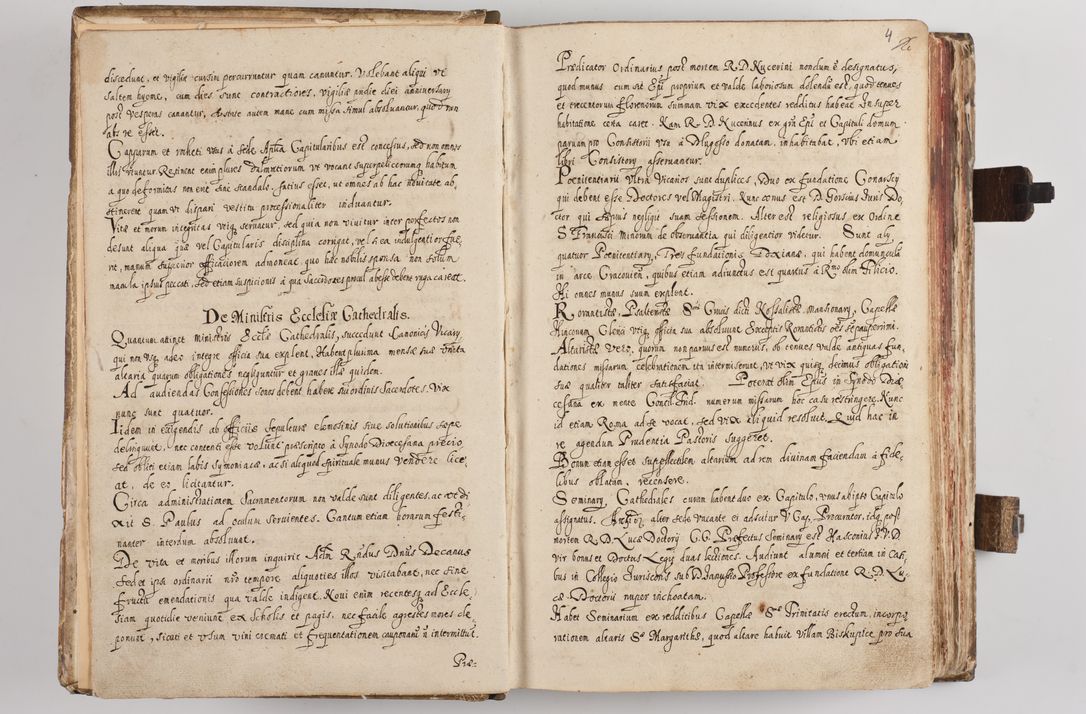 discedunt, et vigiliæ cursim percurruntur quam canuntur. Volebant aliqui vt
saltem hyeme, cum dies sunt contractiores, vigiliæ pridie diei anniuersarij
post vesperas canantur, Missæ autem mane cum missa simul absoluantur, quod non
abs re esset.
Capparum et rocheti vsus à Sede Aplica Capitularibus est concessus, sed non omnes
illis vtuntur Retinent enim plures dalmaticorum vt vocant superpelliceorum habitum
a quo deformitas non enit sine scandalo. Satius esset, ut omnes ab hac nouitate ab,
stinerent quam vt dispari vestitu processionaliter induantur.
Vitæ et morum integritas vtiq seruatur, sed quia non viuitur inter perfectos non
desunt aliqua quæ vel Capitularis disciplina corrigat, vel si ea indulgentior fue,
rit, manum superior efficaciorem admoneat, quo hæc nobilis sponsa non solum
macula ipsius peccati, sed etiam suspicionis à qua Sacerdotes procul abesse debent ruga careat.
De Ministris Ecclesiæ Cathedralis.
Quantum attinet ministros Eccliæ Cathedralis, succedunt Canonicis Vicarij
qui non vsq adeo integre officia sua explent, Habent plurima mensæ suæ vnita
altaria quarum obligationes negliguntur et graues illæ quidem.
Ad audiendas Confessiones senos debent habere sui ordinis Sacerdotes, Vix
nunc sunt quatuor.
Iidem in exigendis ab officiis sepulturæ elemosinis siue solutionibus sæpe
delinquunt, nec contenti esse volunt præscripto à Synodo Diœcesana precio
sed obliti etiam labis symoniacæ, ac si aliquod spirituale munus vendere lice,
at, de eo licitantur.
Circa administrationem Sacramentorum non valde sunt diligentes, ac vt di,
xit S. Paulus ad oculum seruientes. Cantum etiam horarum festi,
nanter interdum absoluunt.
De vita et moribus illorum inquirit Adm Rndus Dnus Decanus
sed et ipsi ordinarii nro tempore aliquoties illos visitabant, nec sine
fructu emendationis qua valde indigent. Noui enim recentesq ad Eccle,
siam quotidie veniunt ex Scholis et pagis, nec facile agrestes mores de,
ponunt, sicuti et vsum vini cremati et frequentationem cauponarum n intermittunt.
Præ=
4
Prædicator Ordinarius post mortem R.D. Kucerini nondum e designatus,
quod munus cum sit Epi proprium et valde laboriosum dolendū est, quod tenues
et trecentorum florenorum summam vix excedentes redditus habeat Insuper
habitatione certa caret. Nam R.D. Kucerinus ex gra Epi et Capituli domum
paruam pro Consistorii vsu à Dlugosso donatam, inhabitabat, vbi etiam
libri Consistorij asseruantur.
Pœnitentiarii Vltra Vicarios sunt duplices, Duo ex fundatione Conarscij
qui debent esse Doctores vel Magistri. Nunc vnus est D. Gorscius Iuris Do,
ctor qui sæpius negligit suam sessionem. Alter est religiosus ex Ordine
S. Francisci minorum de obseruantia qui diligentior videtur. Sunt alij
quatuor Pœnitentiarij, Tres fundationis Dexianæ, qui habent domunculā
in arce Cracouien, quibus etiam adiunctus est quartus à Rmo olim Filicio.
Hi omnes munus suum explent.
Rorantistæ, Psalteristæ Stæ Crucis dicti Rossalistæ, mansionarij, Capellæ
Hiaconum Clerici vtiq officia sua absoluunt Exceptis Rorantistis oēs st pauperrimi.
Altaristæ Vero, quorum non paruus est numerus, ob tenues valde antiquas fun,
dationes missarum celebrationem ita intermiserunt, vt vix quisq decimus obligationi
suæ qualiter taliter satisfaciat. Poterat olim Epus in Synodo Diæ
cesana ex mente Concil. Trid. numerum missarum hoc casu restringere. Nunc
id etiam Roma ad se vocat, sed vix aliquid resoluit. Quid hac in
re agendum Prudentia Pastoris suggeret.
Bonum etiam esset supellectilem altarium ad rem diuinam faciendam à fide,
libus oblatam, recensere.
Seminarij Cathedrales curam habent duo ex Capitulo, vnus ab ipso Capitulo
assignatus, alter sede vacante ei adscitur V. Gaz. Procurator, idq post
mortem R.D. Lucæ Doctorij C.C. Præfectus Seminarij est Hasconius I.V.D
vir bonus et Doctus Legit duas lectiones. Audiunt alumni et tertiam in Casi,
bus in Collegio Iurisconis sub D. Ianussio Professore ex fundatione R.D. Lu,
cæ Doctorii nuper inchoatam.
Habet Seminarium ex redditibus Capellæ Stæ Trinitatis erectum, incorpo
rationem altaris Stæ Margarithæ, quod altare habuit villam Biskupice pro sua